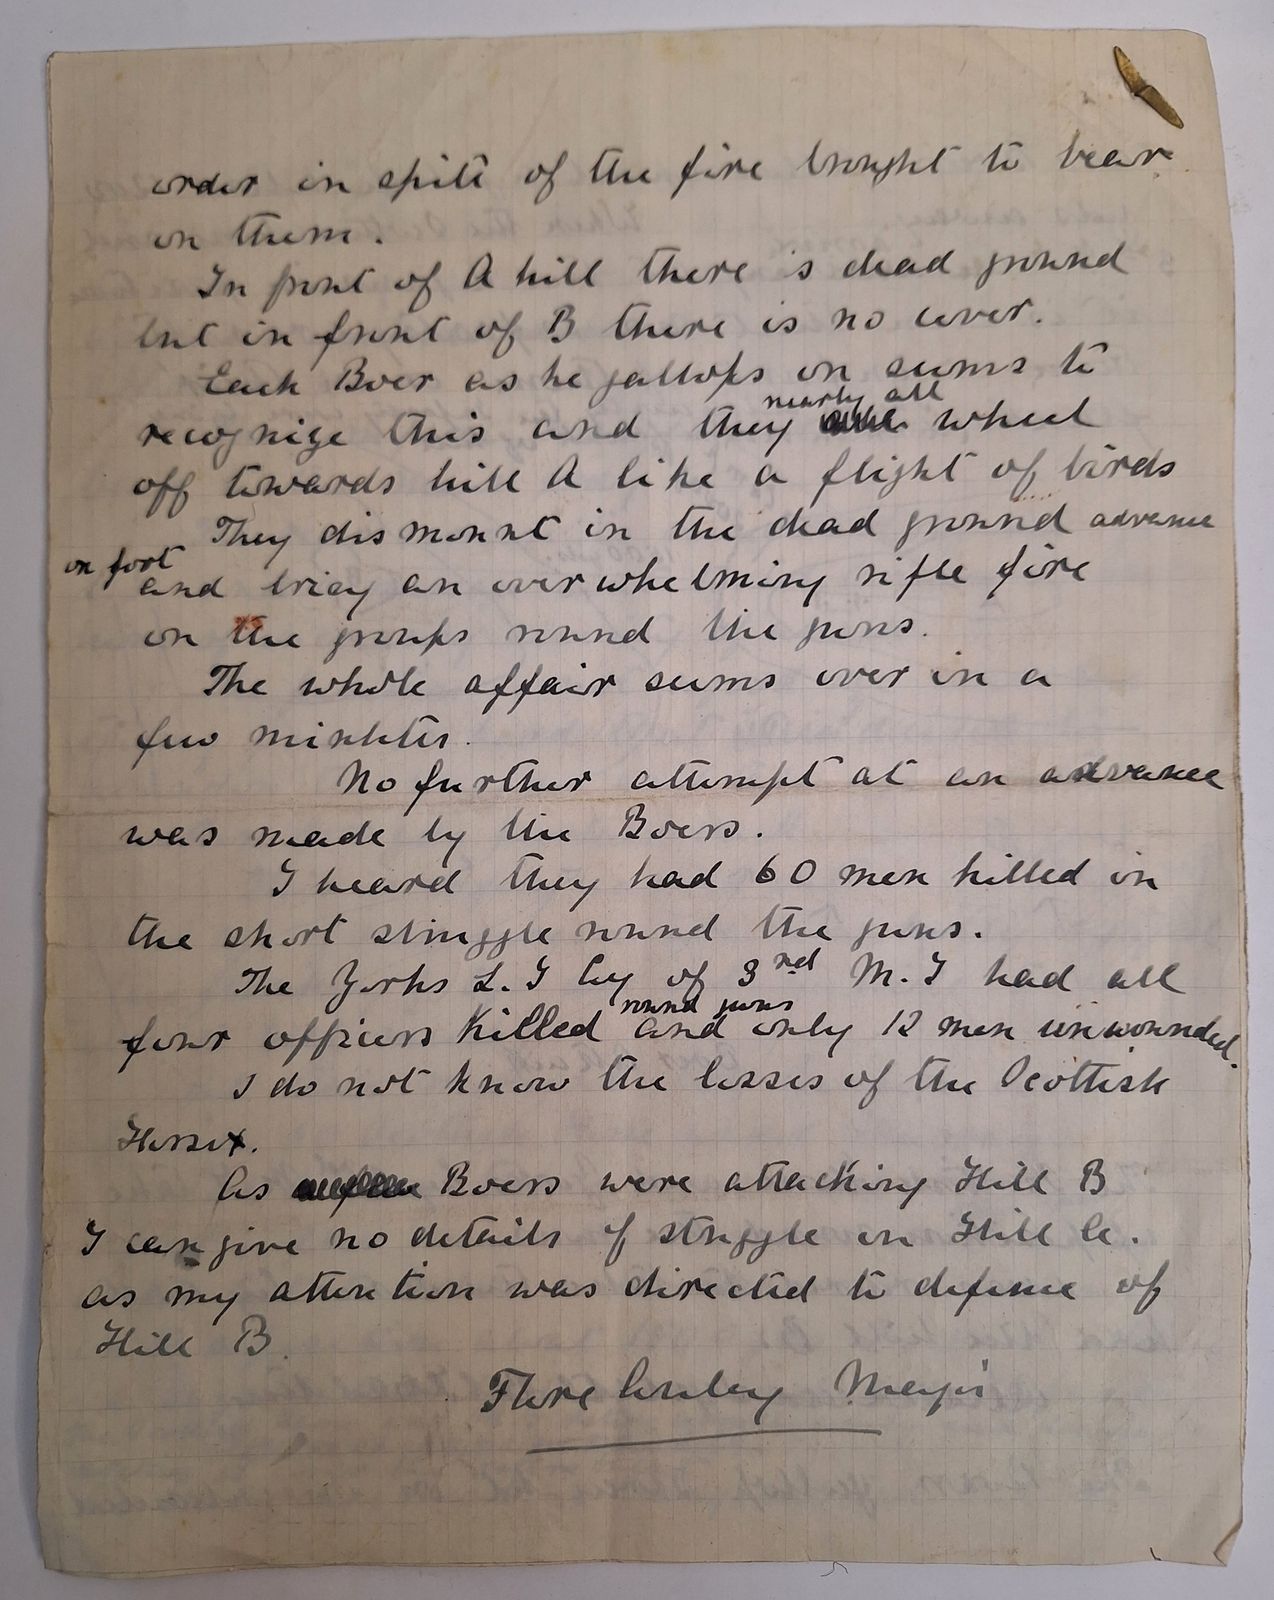 order in spite of the fire brought to bear
on them.
In front of A hill there is dead ground
but in front of B there is no cover.
Each Boer as he gallops on seems to
nearly all
recognize this and they wheel
off towards hill A like a flight of birds
They dismount in the dead ground advance
on foot
and bring an overwhelming rifle fire
on the groups round the guns.
The whole affair seems over in a
few minutes.
No further attempt at an advance
was made by the Boers.
I heard they had 60 men killed in
the short struggle round the guns.
The Yorks L. I Coy of 3rd M. I had all
round guns
four officers killed and only 12 men unwounded.
I do not know the losses of the Scottish
Horse.
As Boers were attacking Hill B
I can give no details of struggle on Hill A.
as my attention was directed to defence of
Hill B.
Major